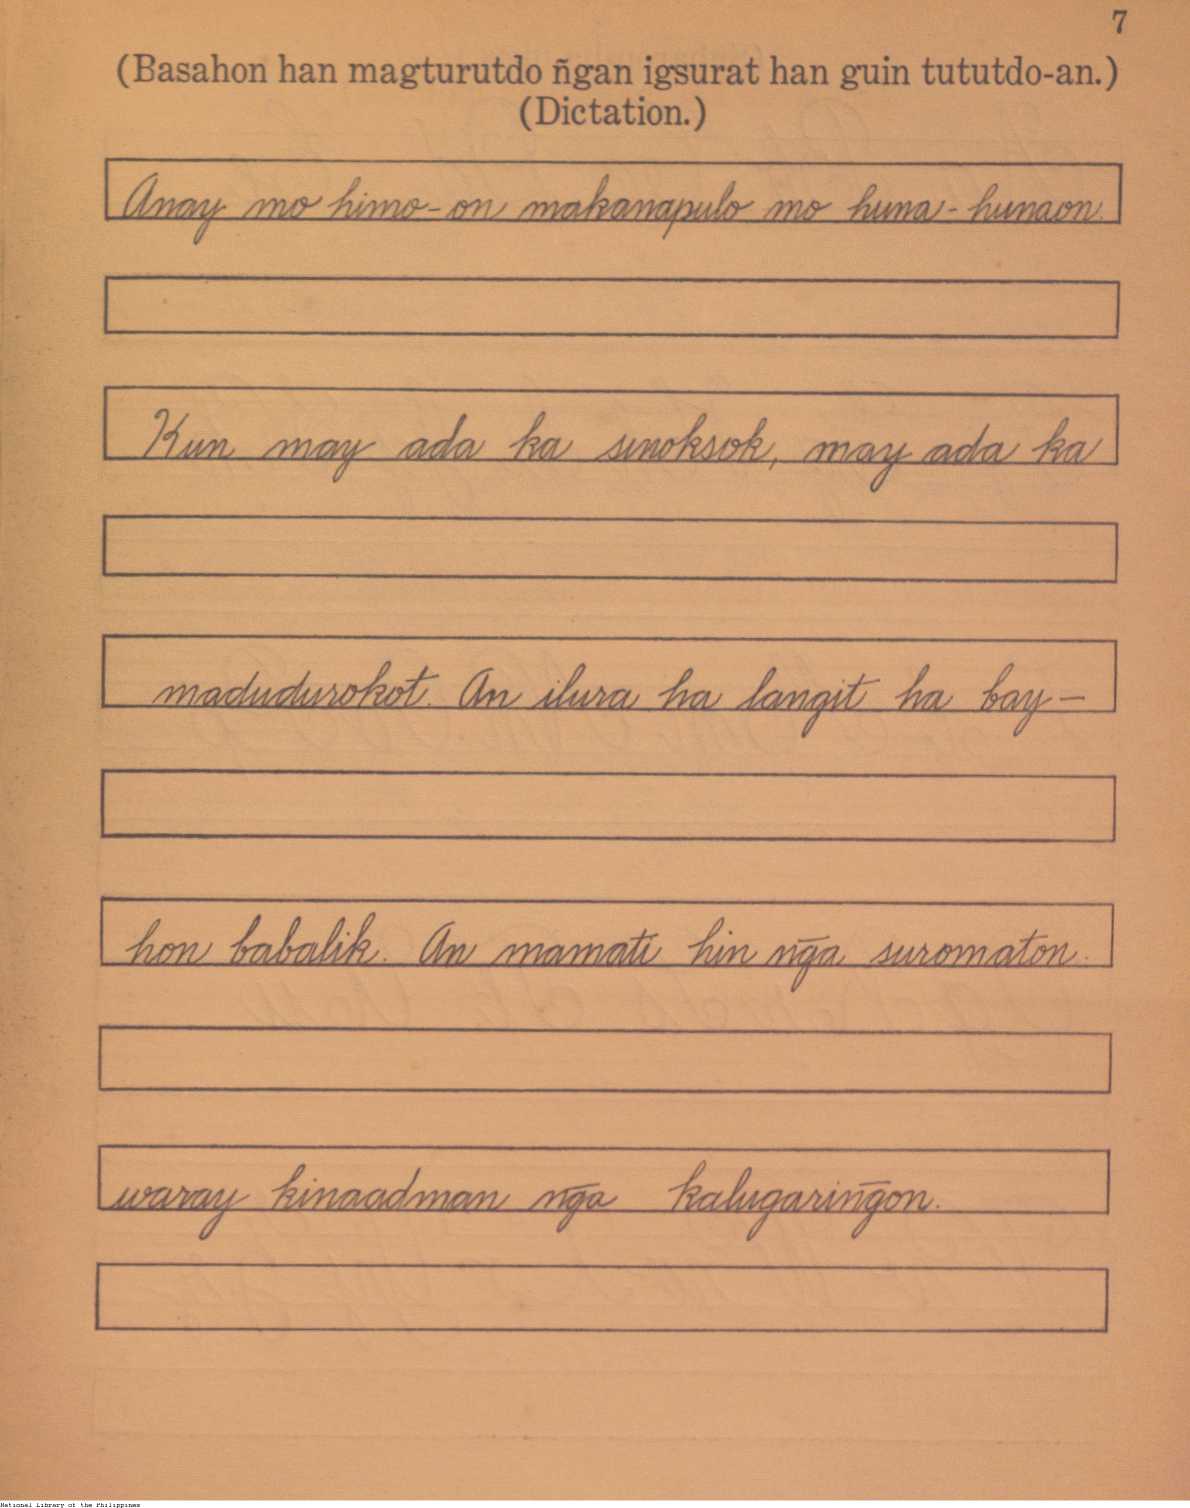 7
(Basahon han magturutdo ñgan igsurat han guin tututdo-an.)
(Dictation.)
Anay mo himo-on makanapulo mo huna-hunaon.
Kun may ada ka sinoksok, may ada ka
madudurokot. An ilura ha langit ha bay-
hon babalik. An mamati hin ng̃a suromaton.
waray kinaadman ng̃a kalugaring̃on.
National Library of the Philippines